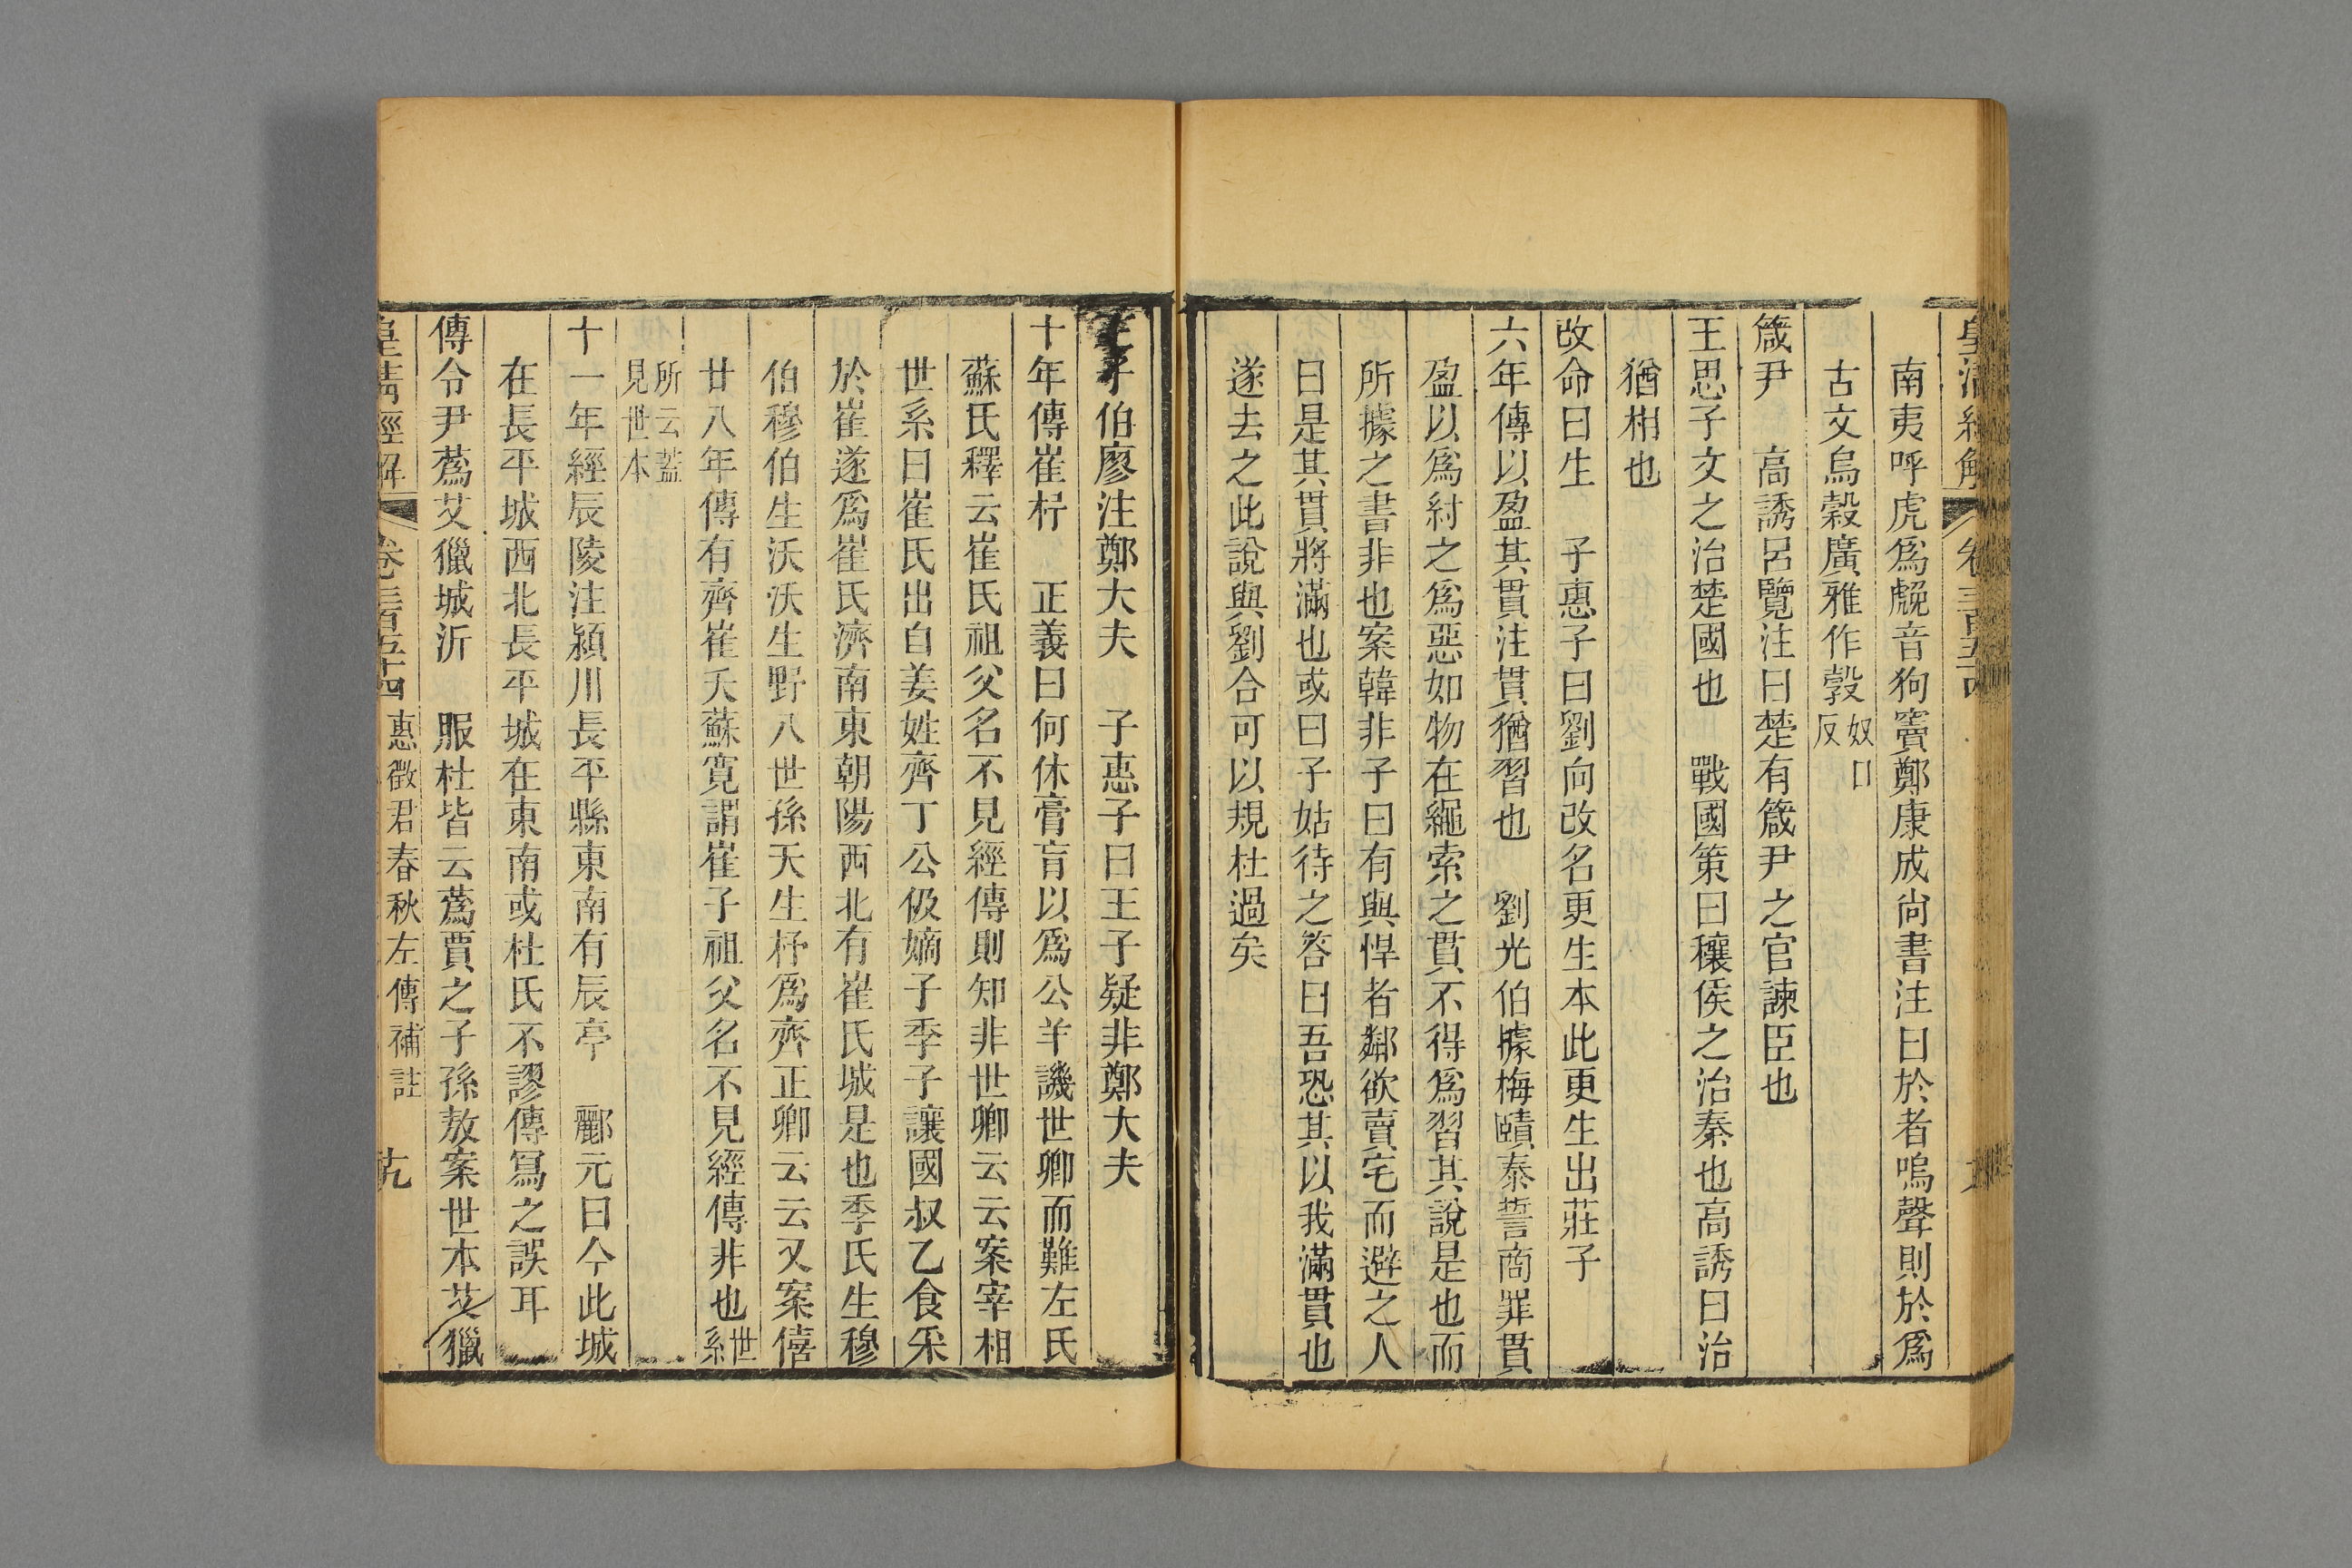 皇清經解
卷三百五十四
南夷呼虎爲䖘音狗竇鄭康成尚書注曰於者嗚聲則於爲
古文烏穀廣雅作㝅奴口反
箴尹　高誘呂覽注曰楚有箴尹之官諫臣也
王思子文之治楚國也　戰國策曰穰侯之治秦也高誘曰治
猶相也
改命曰生　子惠子曰劉向改名更生本此更生出莊子
六年傳以盈其貫注貫猶習也　劉光伯據梅賾泰誓商罪貫
盈以爲紂之爲惡如物在繩索之貫不得爲習其說是也而
所據之書非也案韓非子曰有與悍者鄰欲賣宅而避之人
曰是其貫將滿也或曰子姑待之答曰吾恐其以我滿貫也
遂去之此說與劉合可以規杜過矣
王子伯廖注鄭大夫　子惠子曰王子疑非鄭大夫
十年傳崔杼　正義曰何休膏肓以爲公羊譏世卿而難左氏
蘇氏釋云崔氏祖父名不見經傳則知非世卿云云案宰相
世系曰崔氏出自姜姓齊丁公伋嫡子季子讓國叔乙食采
於崔遂爲崔氏濟南東朝陽西北有崔氏城是也季氏生穆
伯穆伯生沃沃生野八世孫夭生杼爲齊正卿云云又案僖
廿八年傳有齊崔夭蘇寬謂崔子祖父名不見經傳非也世系
所云蓋見世本
十一年經辰陵注潁川長平縣東南有辰亭　酈元曰今此城
在長平城西北長平城在東南或杜氏不謬傳冩之誤耳
傳令尹蒍艾獵城沂　服杜皆云蒍賈之子孫敖案世本艾獵
皇清經解
卷三百五十四
惠徵君春秋左傳補註
十九